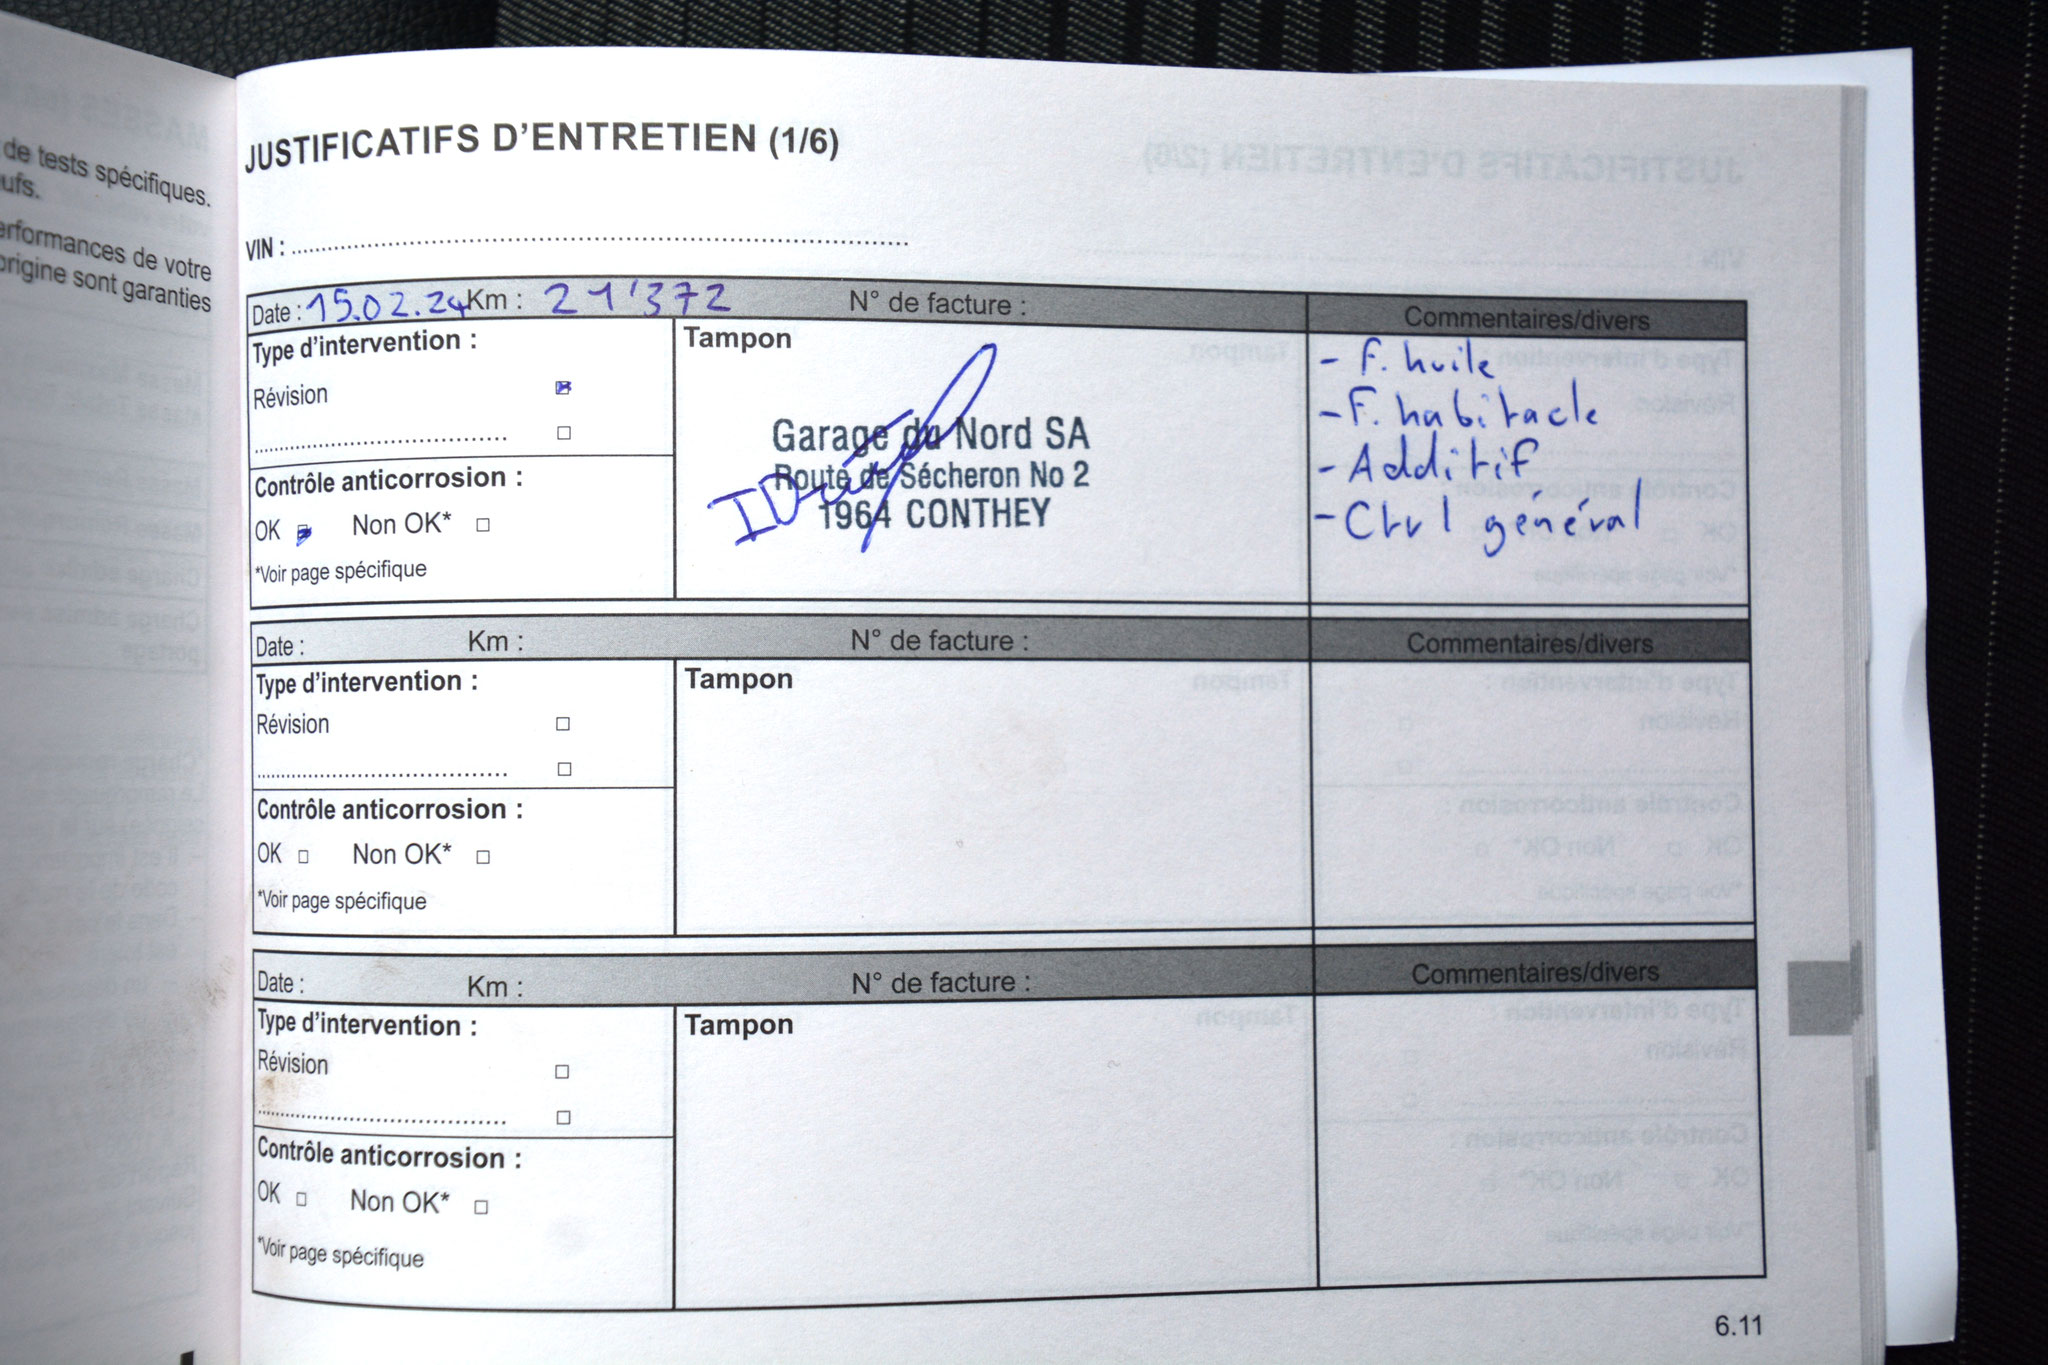 de tests spécifiques.
ufs.
erformances de votre
origine sont garanties
JUSTIFICATIFS D'ENTRETIEN (1/6)
VIN : ..........
Date : 15.02.24 Km : 21'372 N° de facture : Commentaires/divers
Type d'intervention : Tampon
Révision
Contrôle anticorrosion :
OK Non OK*
*Voir page spécifique
Garage du Nord SA
Route de Sécheron No 2
1964 CONTHEY
- F. huile
- F. habitacle
- Additif
- Ctrl général
Date : Km : N° de facture : Commentaires/divers
Type d'intervention : Tampon
Révision
Contrôle anticorrosion :
OK Non OK*
*Voir page spécifique
Date : Km : N° de facture : Commentaires/divers
Type d'intervention : Tampon
Révision
Contrôle anticorrosion :
OK Non OK*
*Voir page spécifique
6.11